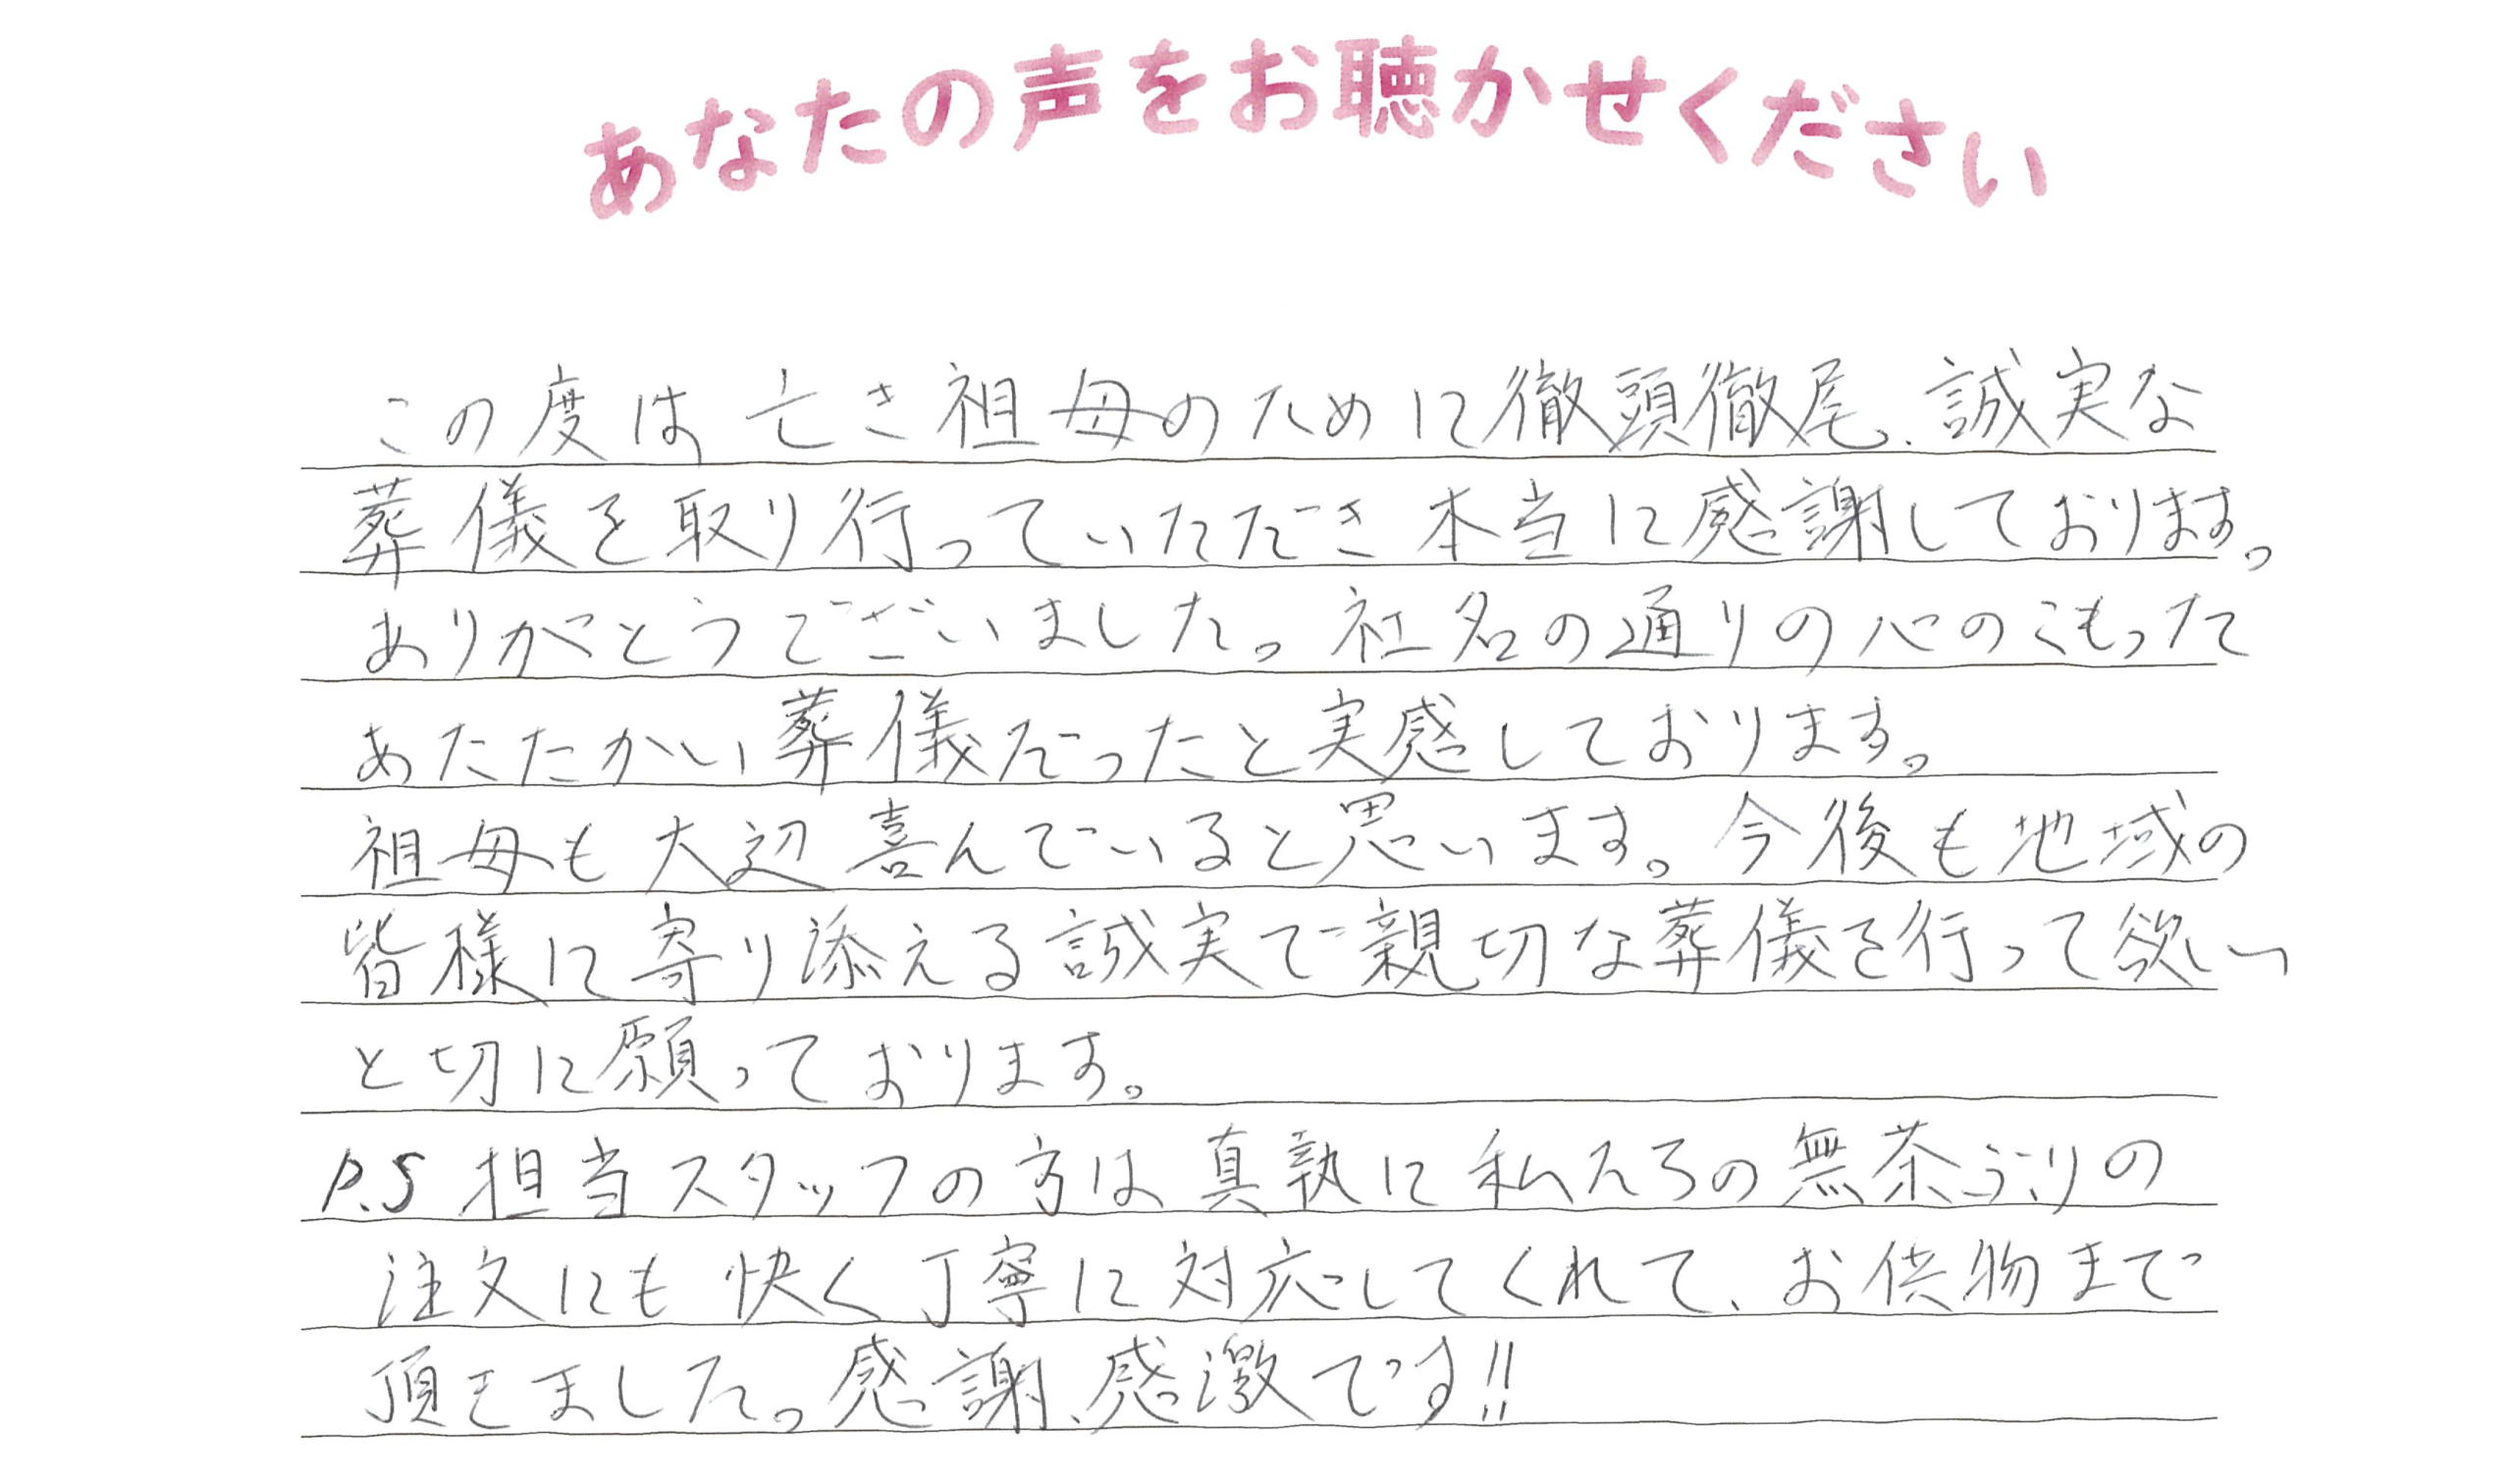 あなたの声をお聴かせください
この度は亡き祖母のために徹頭徹尾、誠実な
葬儀を取り行っていただき本当に感謝しております。
ありがとうございました。社名の通りの心のこもった
あたたかい葬儀だったと実感しております。
祖母も大辺喜んでいると思います。今後も地域の
皆様に寄り添える誠実で親切な葬儀を行って欲しい
と切に願っております。
P.S 担当スタッフの方は真執に私たちの無茶ぶりの
注文にも快く丁寧に対応してくれて、お供物まで
頂きました。感謝、感激です!!